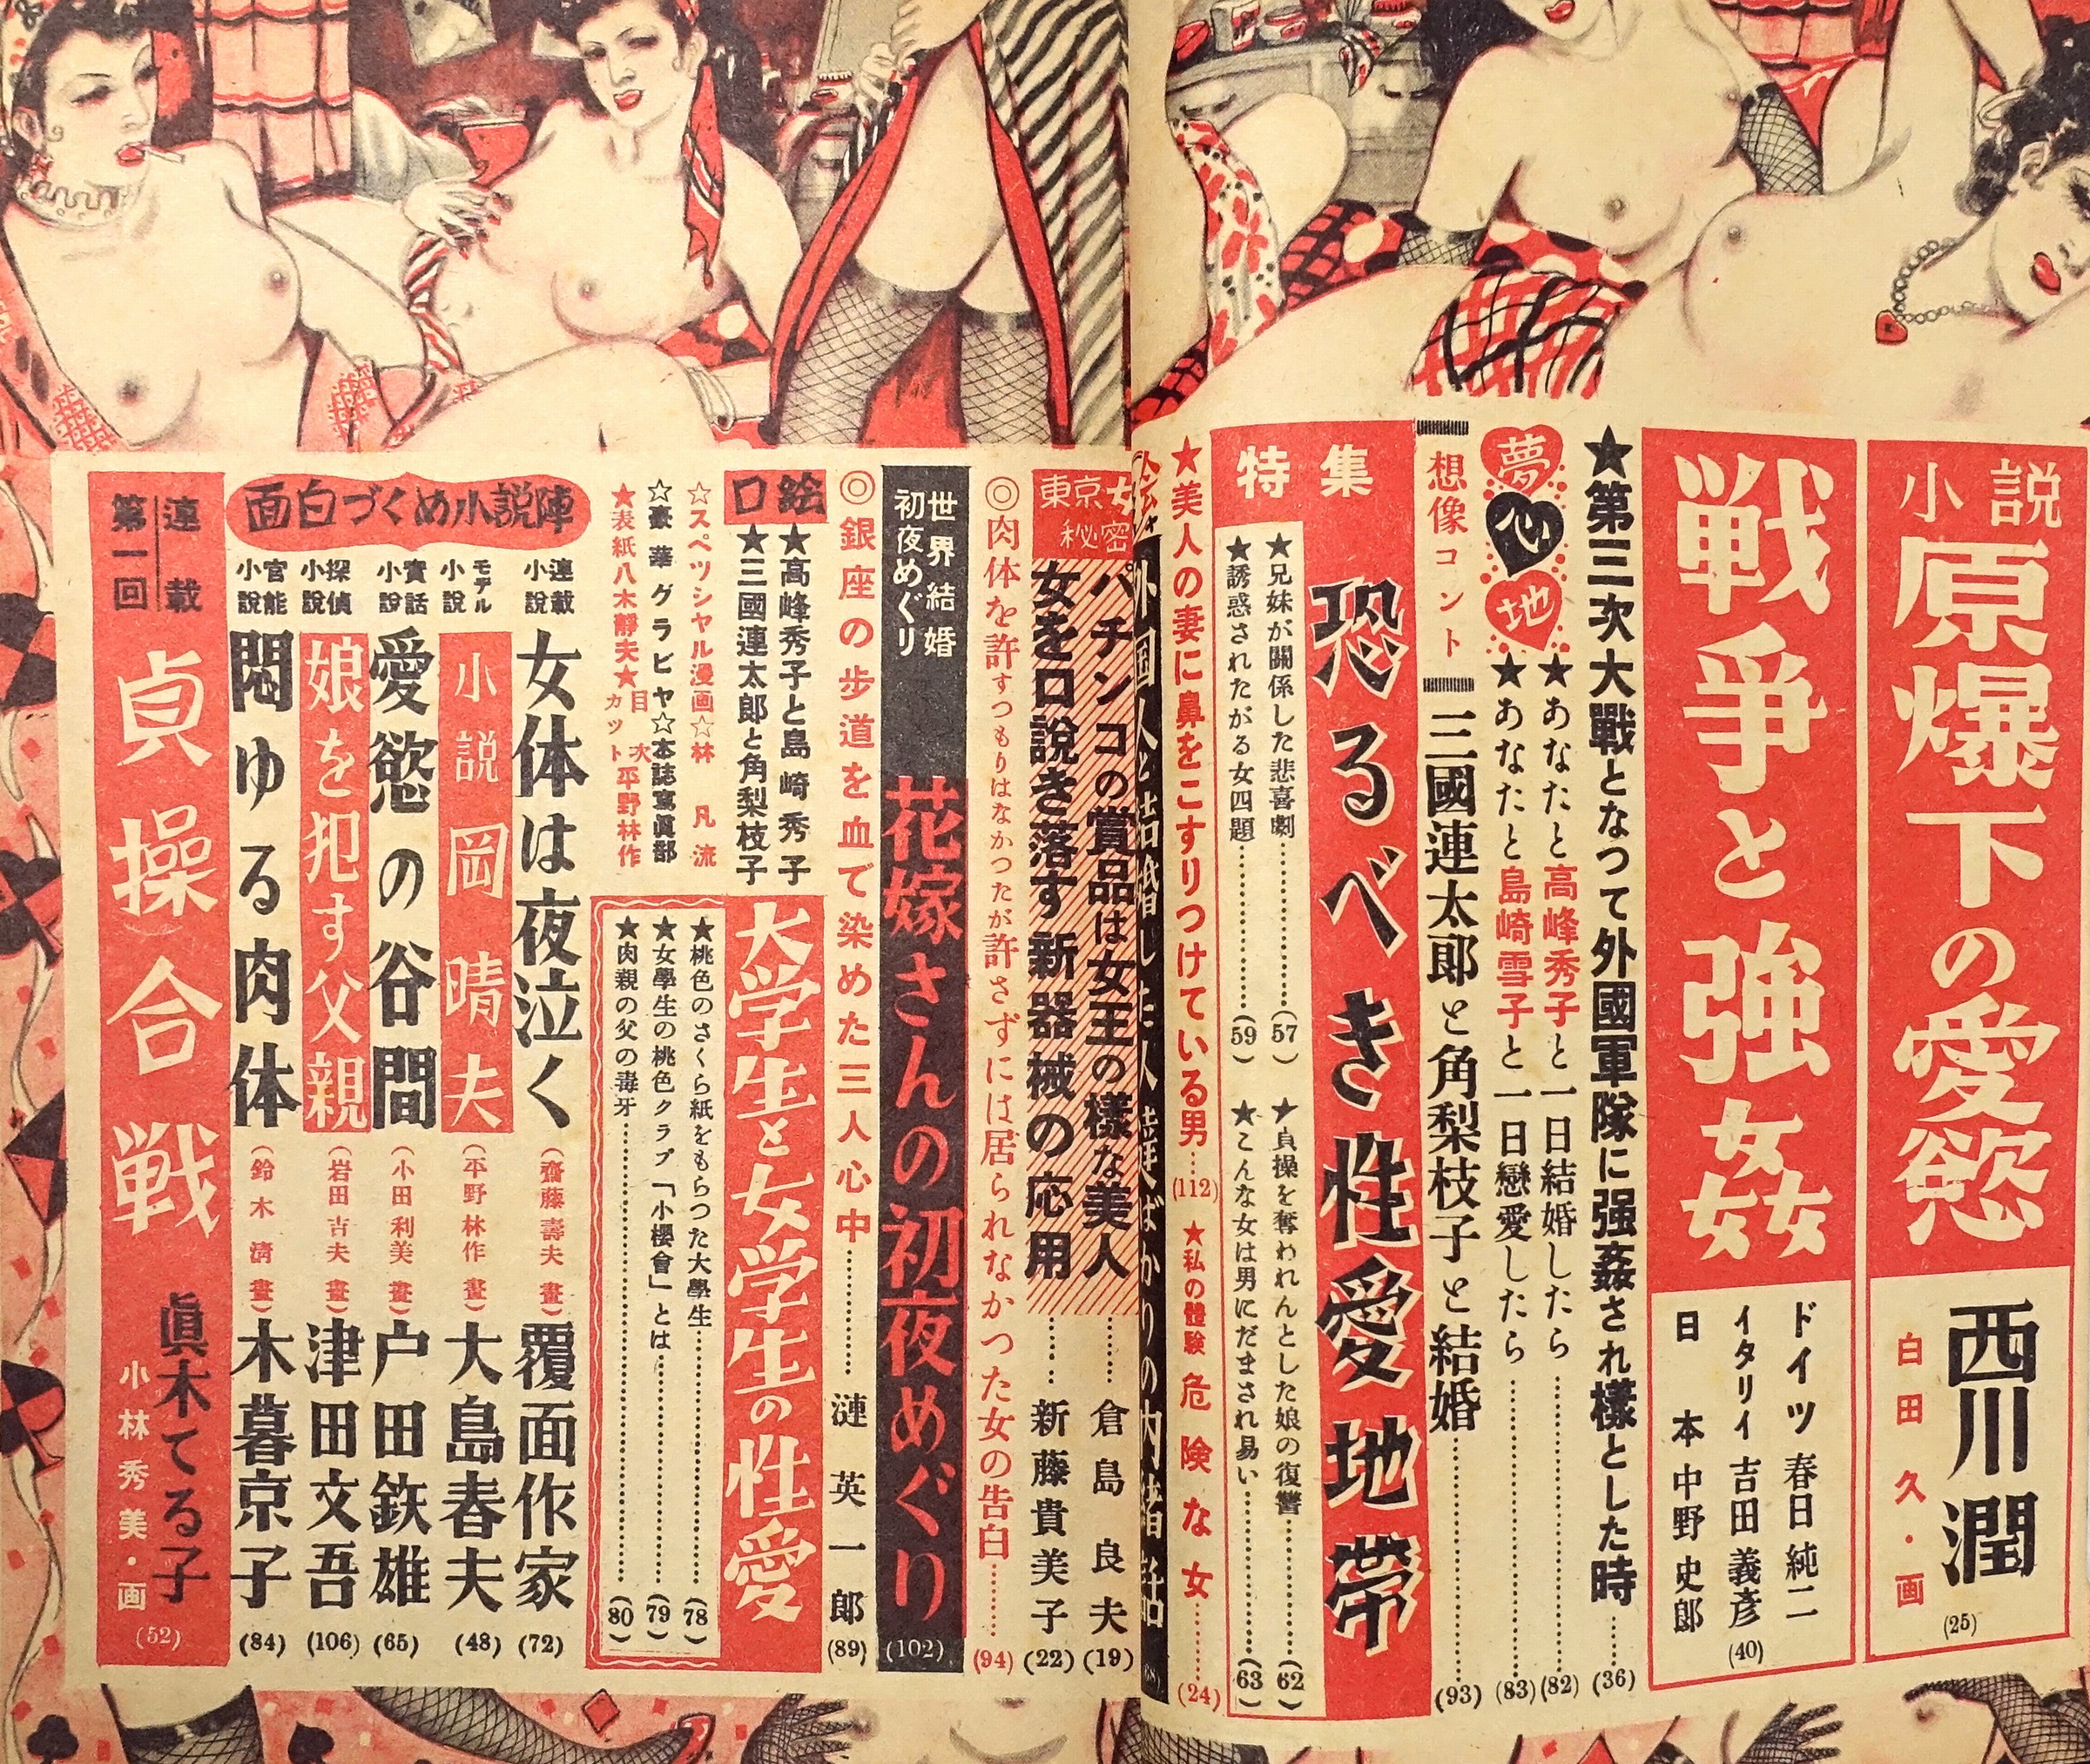 小説
原爆下の愛慾
西川潤
白田久・画
(25)
戦争と強姦
ドイツ 春日純二
イタリイ 吉田義彥
日本 中野史郎
(40)
★第三次大戰となつて外國軍隊に强姦され樣とした時……(36)
夢心地
★あなたと高峰秀子と一日結婚したら……(82)
★あなたと島崎雪子と一日戀愛したら……(83)
想像コント
三國連太郎と角梨枝子と結婚……(93)
特集
恐るべき性愛地帯
★兄妹が關係した悲喜劇……(57)
★貞操を奪われんとした娘の復讐……(62)
★誘惑されたがる女四題……(59)
★こんな女は男にだまされ易い……(63)
★美人の妻に鼻をこすりつけている男…(112)
★私の體驗 危険な女……(24)
東京女
秘密
パチンコの賞品は女王の樣な美人……倉島良夫(19)
女を口説き落す新器械の応用……新藤貴美子(22)
◎肉体を許すつもりはなかつたが許さずには居られなかつた女の告白……(94)
世界結婚
初夜めぐり
花嫁さんの初夜めぐり
(102)
◎銀座の歩道を血で染めた三人心中……漣英一郎(89)
口絵
★高峰秀子と島崎秀子
★三國連太郎と角梨枝子
大学生と女学生の性愛
★桃色のさくら紙をもらつた大學生……(78)
★女學生の桃色クラブ「小櫻會」とは……(79)
★肉親の父の毒牙……(80)
☆スペツシャル漫画☆林凡流
☆豪華グラビヤ☆本誌寫眞部
★表紙八木靜夫★目次カット平野林作
面白づくめ小説陣
連載小說
女体は夜泣く
(齋藤壽夫畫)
覆面作家
(72)
モデル小說
小説岡晴夫
(平野林作畫)
大島春夫
(48)
實話小說
愛慾の谷間
(小田利美畫)
户田鉄雄
(65)
探偵小說
娘を犯す父親
(岩田吉夫畫)
津田文吾
(106)
官能小說
悶ゆる肉体
(鈴木淸畫)
木暮京子
(84)
連載
第一回
貞操合戦
眞木てる子
小林秀美・画
(52)